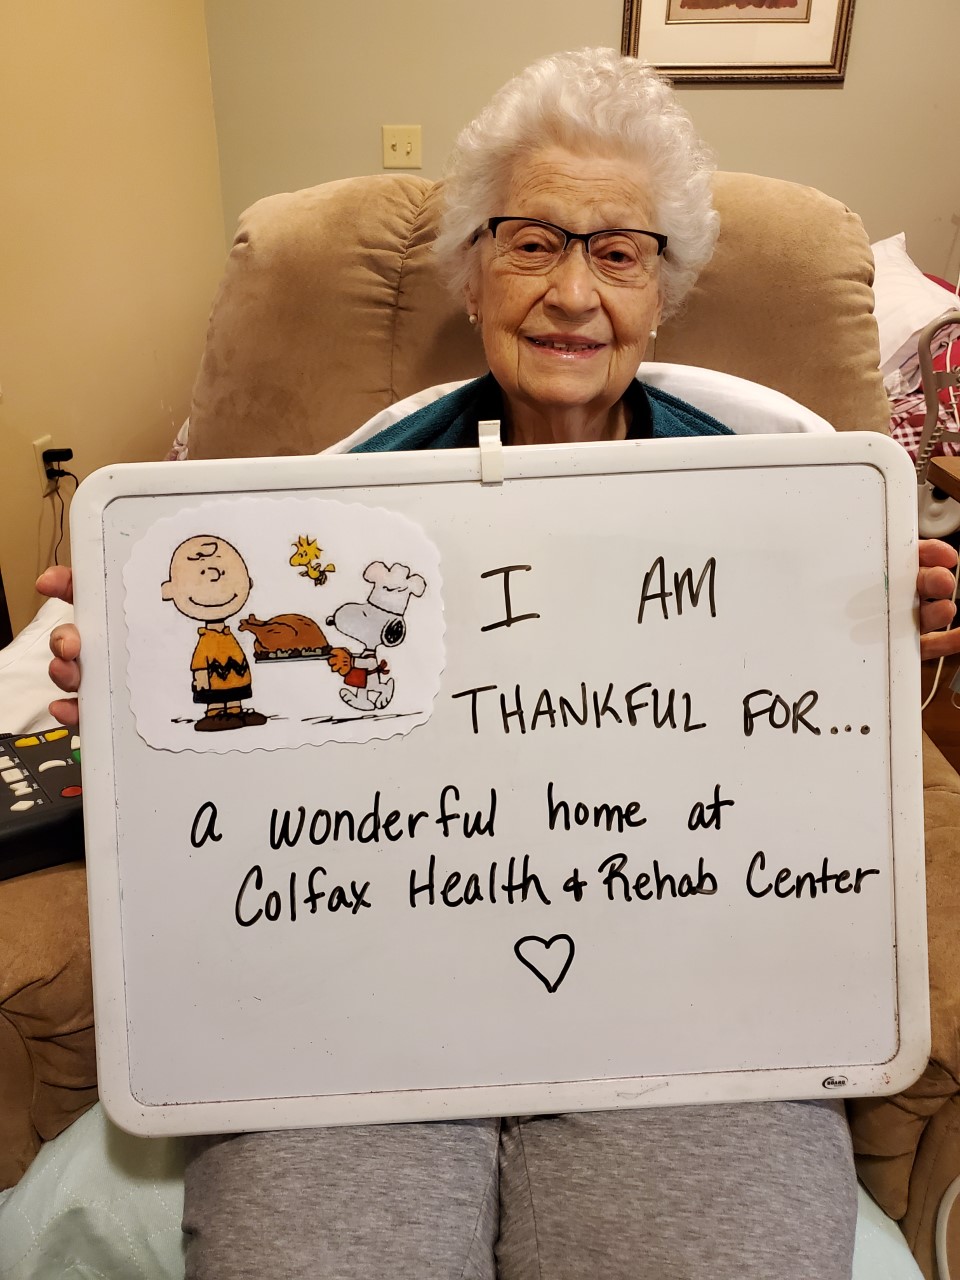 I AM
THANKFUL FOR...
a wonderful home at
Colfax Health & Rehab Center
BOARD